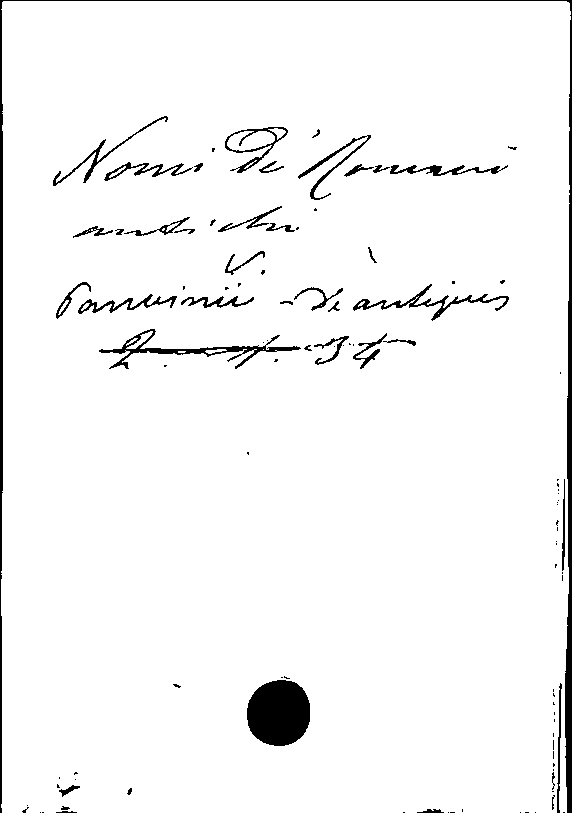 Nomi De' Romani
antichi
V.
Panvinii - De antiquis
2. 4. 34